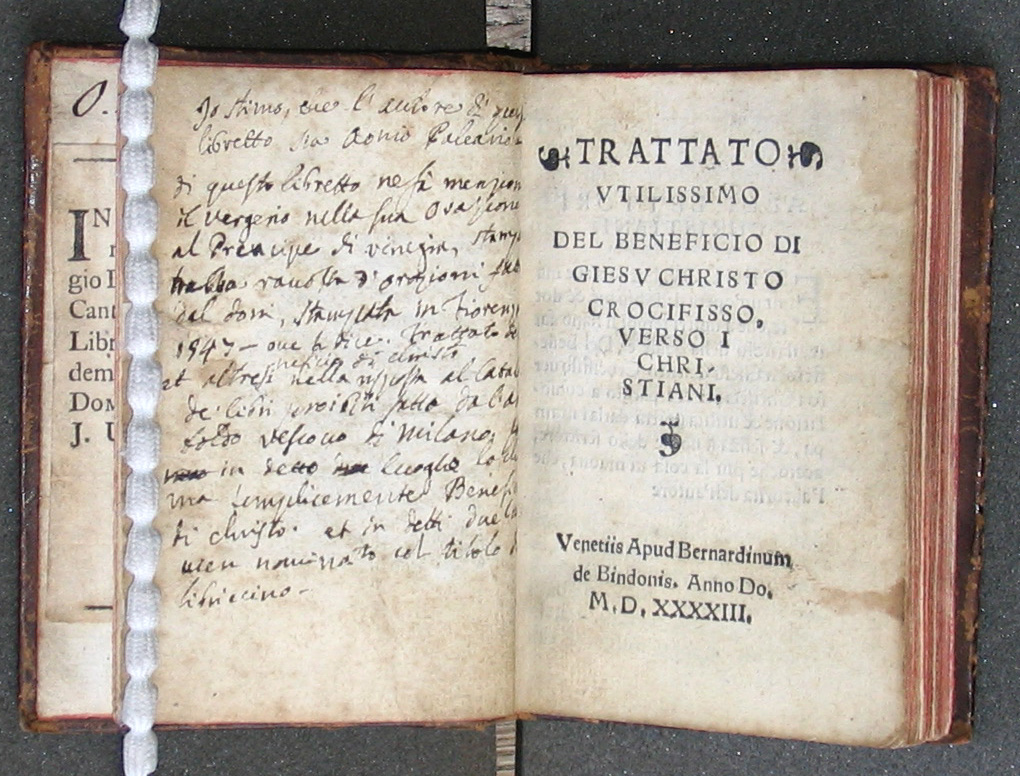 O.
IN
r
gio I
Cant
Libr
dem
DOM
J. U
Io stimo, che l'autore di
libretto sia Aonio Paleario
di questo libretto ne fà menzion
il Vergerio nella sua Orazione
al Principe di Venezia, stamp
nella raccolta d'orazioni
del doni, stampata in Fiorenz
1547 - ove si dice. Trattato de
neficio di Christo
et altresi nella risposta al Catal
de libri proibiti fatto da
vescovo di Milano,
in detto luoghi
ma semplicemente Benef
di Christo. et in detti due
vien nominato col titolo
libriccino -
TRATTATO
VTILISSIMO
DEL BENEFICIO DI
GIESV CHRISTO
CROCIFISSO,
VERSO I
CHRI-
STIANI.
Venetiis Apud Bernardinum
de Bindonis. Anno Do.
M. D. XXXXIII.